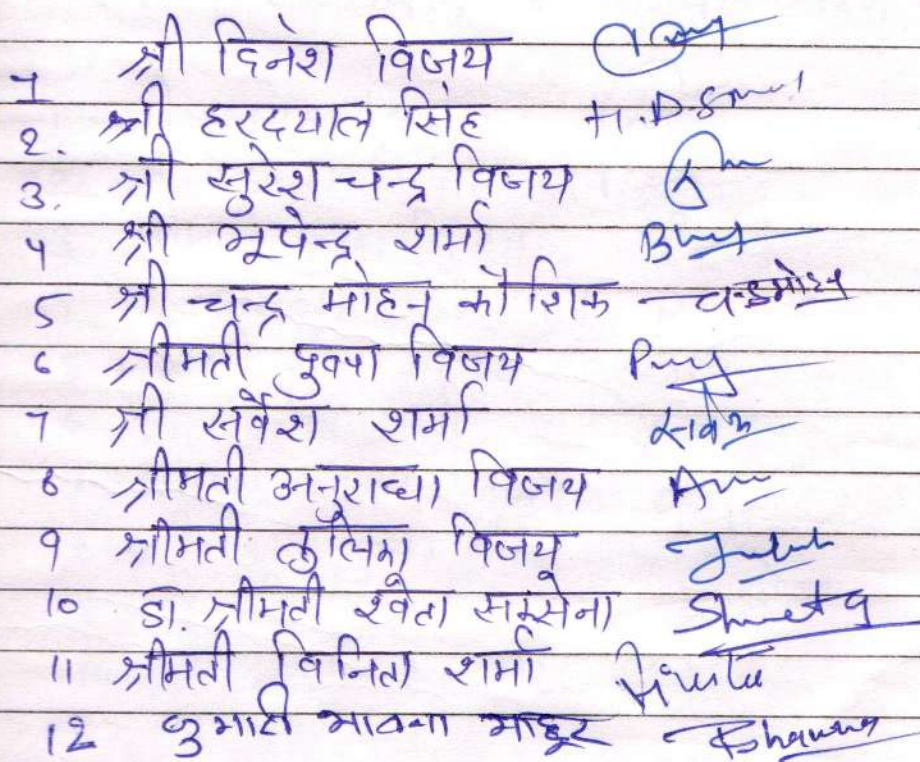 1 श्री दिनेश विजय
2. श्री हरदयाल सिंह H.D.
3. श्री सुरेश चन्द्र विजय
4 श्री भूपेन्द्र शर्मा
5 श्री चन्द्र मोहन कौशिक चन्द्रमोहन
6 श्रीमती पुष्पा विजय
7 श्री सर्वेश शर्मा सर्वेश
8 श्रीमती अनुराधा विजय
9 श्रीमती तुलिका विजय
10 डा. श्रीमती श्वेता सक्सेना Shweta
11 श्रीमती विनिता शर्मा
12 कुमारी भावना माहूर Bhawna